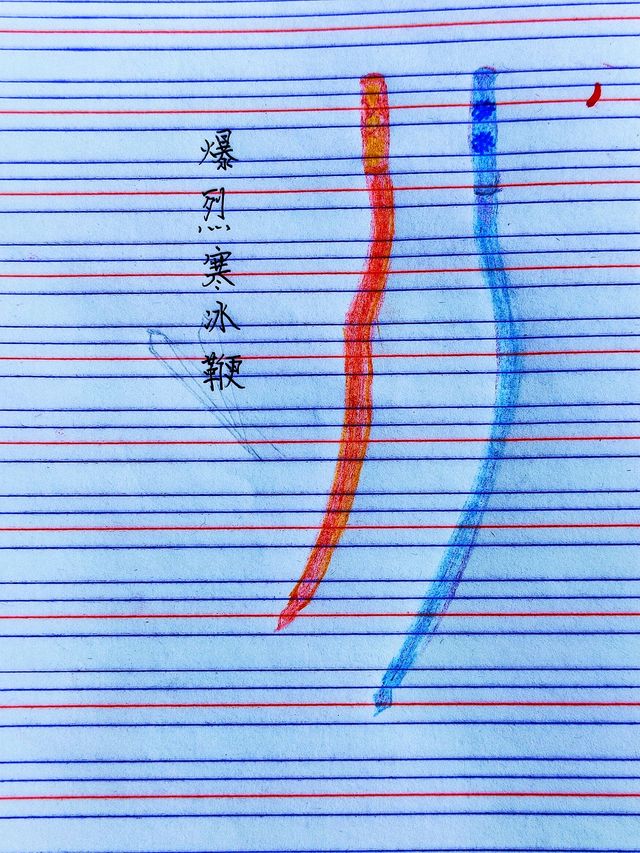 爆烈寒冰鞭